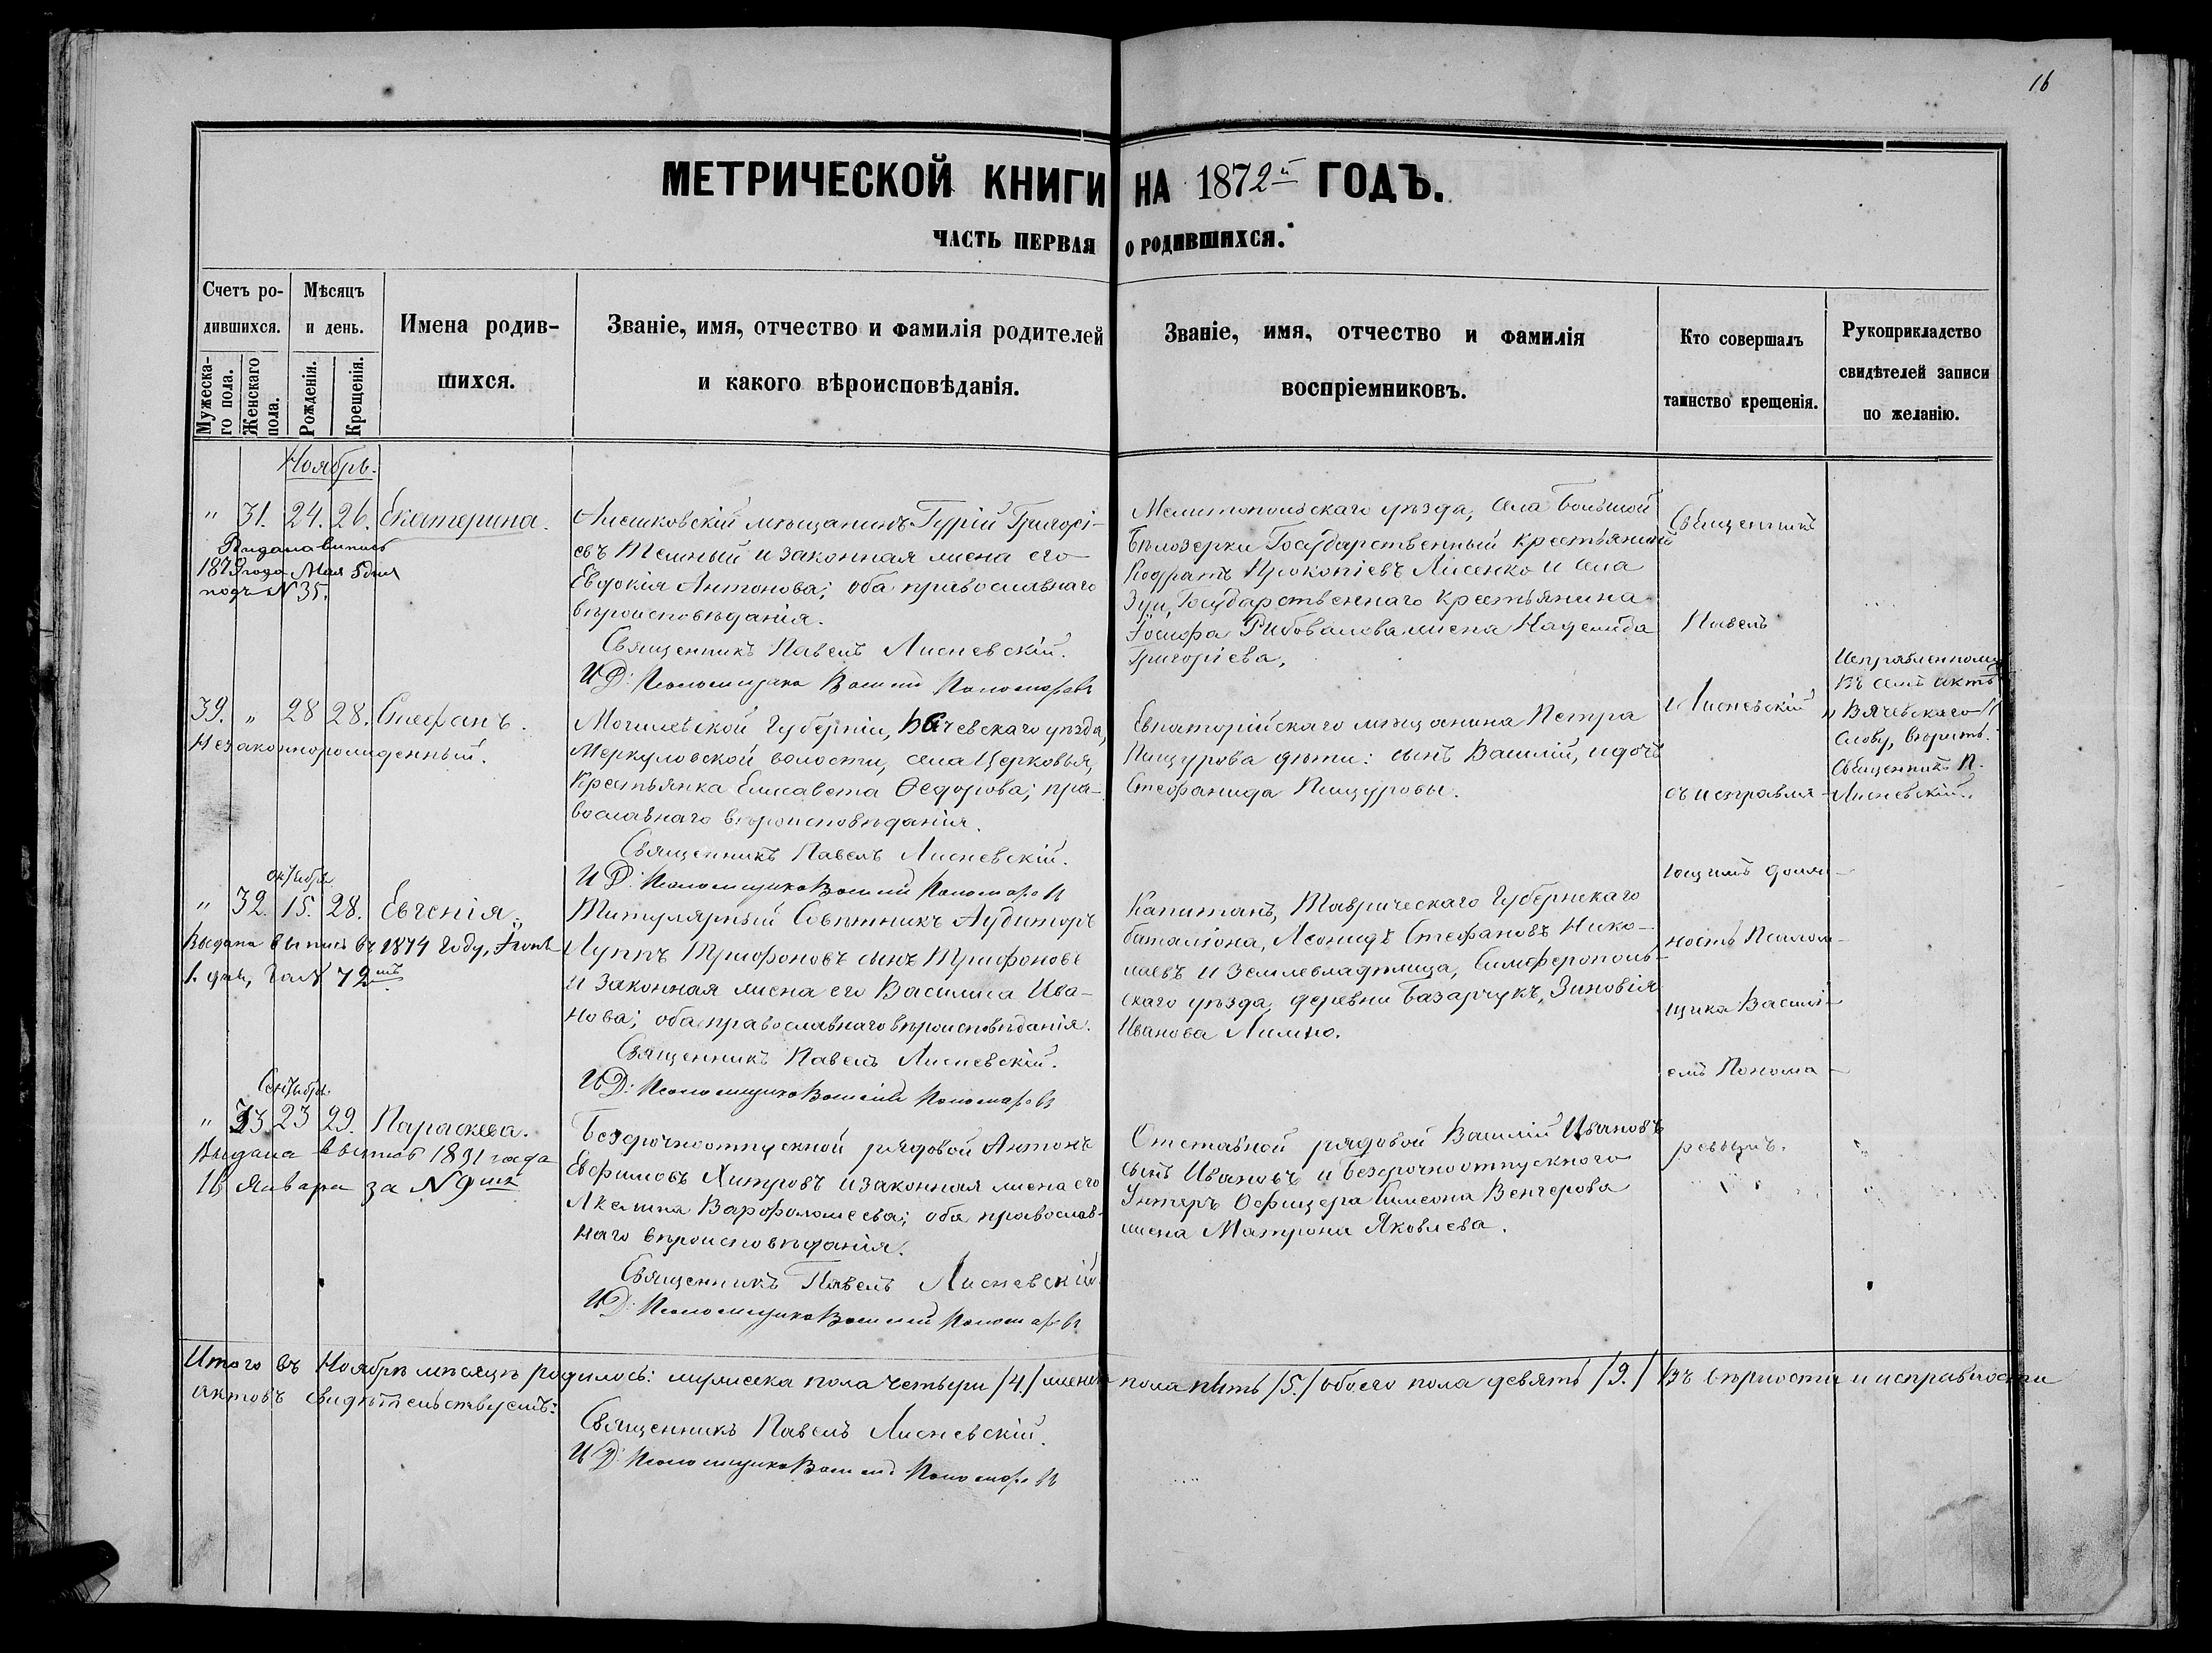 16
МЕТРИЧЕСКОЙ КНИГИ НА 1872й ГОДЪ.
ЧАСТЬ ПЕРВАЯ О РОДИВШИХСЯ.
Счетъ ро-
дившихся.
Мужеска-
го пола.
Женскаго
пола.
Мѣсяцъ
и день.
Рожденія.
Крещенія.
Имена родив-
шихся.
Званіе, имя, отчество и фамилія родителей
и какого вѣроисповѣданія.
Званіе, имя, отчество и фамилія
воспріемниковъ.
Кто совершалъ
таинство крещенія.
Рукоприкладство
свидѣтелей записи
по желанію.
Ноябрь.
" 31. 24. 26. Екатерина.
Выдана выпись
1879 года Мая 5 дня
подъ N 35.
Алешковскій мѣщанинъ Гурій Григорі-
евъ Темный и законная жена его
Евдокія Антонова; оба православнаго
вѣроисповѣданія.
Священникъ Павелъ Лисневскій.
И.Д: Псаломщика Василий Пономаревъ
Мелитопольскаго уѣзда, села Большой
Бѣлозерки Государственный крестьянинъ
Кодратъ Прокопіевъ Лисенко и села
Зуи, Государственнаго крестьянина
Іосифа Рибовалова жена Надежда
Григоріева,
39. " 28 28. Стефанъ.
Незаконнорожденный.
Могилевской Губерніи, уѣзда,
Меркуловской волости, села Церковья,
Крестьянка Елисавета Ѳедорова; пра-
вославнаго вѣроисповѣданія.
Священникъ Павелъ Лисневскій.
И.Д: Псаломщика Василий Пономаревъ
Евпаторійскаго мѣщанина Петра
Пищурова дѣти: сынъ Василій, и дочь
Стефанида Пищуровы.
Исправленному
въ семъ актѣ
слову, вѣрить.
Священникъ П.
Лисневскій.
Октября
" 32. 15. 28. Евгенія.
Выдана выпись въ 1874 году, Іюня
1. дня, за N 72мъ
Титулярный Совѣтникъ Аудиторъ
Луппъ Трифоновъ сынъ Трифоновъ
и законная жена его Василиса Ива-
нова; оба православнаго вѣроисповѣданія.
Священникъ Павелъ Лисневскій.
И.Д: Псаломщика Василий Пономаревъ
Капитанъ, Таврическаго Губернскаго
баталіона, Леонидъ Стефановъ Нико-
лаевъ и Землевладѣлица, Симферополь-
скаго уѣзда, деревни Базарчукъ, Зиновія
Иванова
Сентября
" 33. 23 29. Параскева.
Выдана выпись 1891 года
16 Января за N 9мъ
Безсрочноотпускной рядовой Антонъ
Евфимовъ Хитровъ и законная жена его
Варофоломеева; оба православ-
наго вѣроисповѣданія.
Священникъ Павелъ Лисневскій
И.Д: Псаломщика Василий Пономаревъ
Отставной рядовой Василій Ивановъ
сынъ Ивановъ и безсрочноотпускного
Унтеръ Офицера Симеона Венгерова
жена Матрона Яковлева.
Священникъ
Павелъ
Лисневскій
съ исправля-
ющимъ долж-
ность Псалом-
щика Василі-
емъ Понома-
ревымъ.
Итого въ Ноябрѣ мѣсяцѣ родилось: мужеска пола четыри /4./ женска пола пять /5./ обоего пола девять /9./ Въ вѣрности и исправности
актовъ свидѣтельствуемъ:
Священникъ Павелъ Лисневскій.
И.Д: Псаломщика Василий Пономаревъ